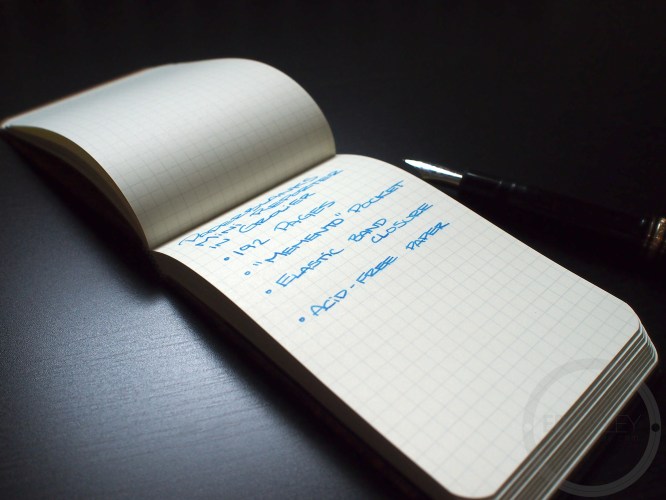 PAPERBLANKS
MINI REPORTER
IN GROLIER
• 192 PAGES
• "MEMENTO" POCKET
• ELASTIC BAND
CLOSURE
• ACID-FREE PAPER